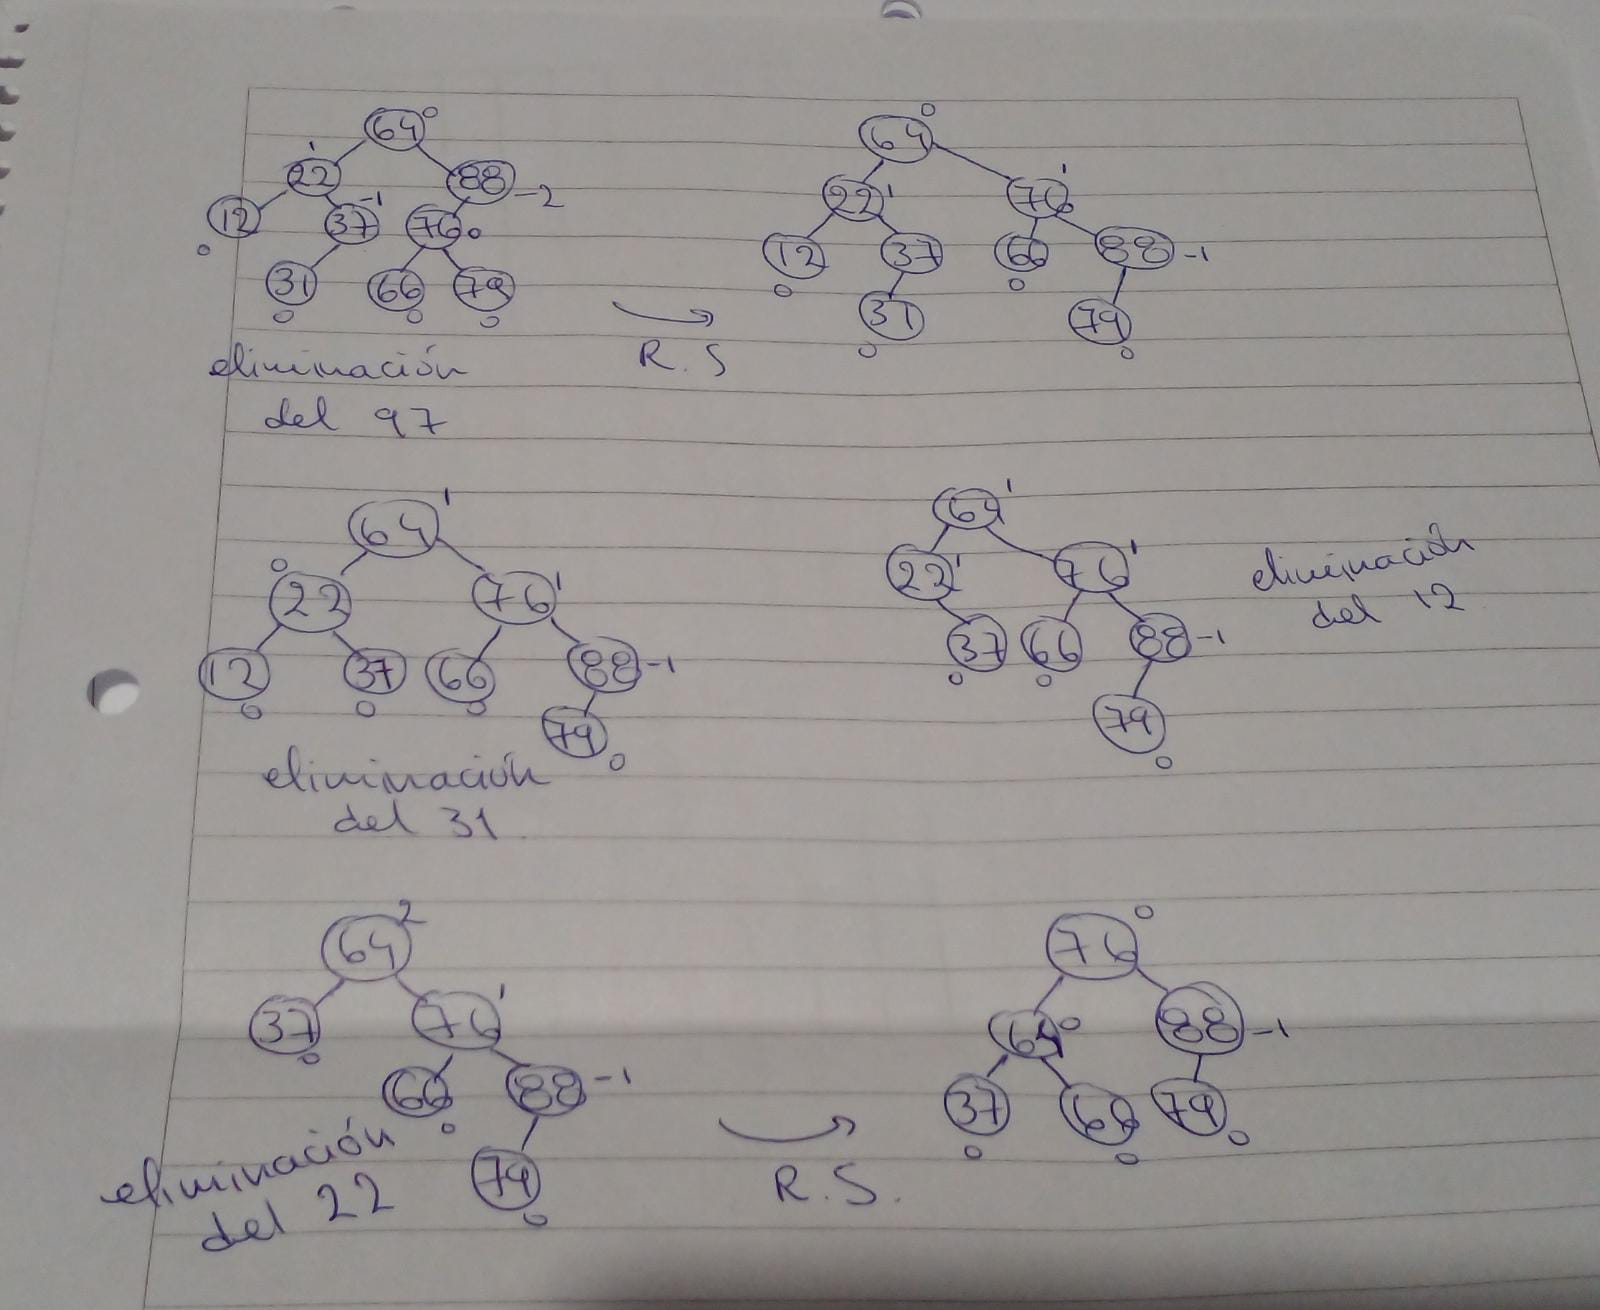 64 0
22 1 88 -2
12 0 37 -1 76 0
31 0 66 0 79 0
eliminación
del 97
R.S
64 0
22 1 76 1
12 0 37 66 0 88 -1
31 0 79 0
64 1
22 0 76 1
12 0 37 0 66 0 88 -1
79 0
eliminación
del 31
64 1
22 1 76 1
37 0 66 0 88 -1
79 0
eliminación
del 12
64 2
37 0 76 1
66 0 88 -1
79 0
eliminación
del 22
R.S.
76 0
64 0 88 -1
37 0 66 0 79 0